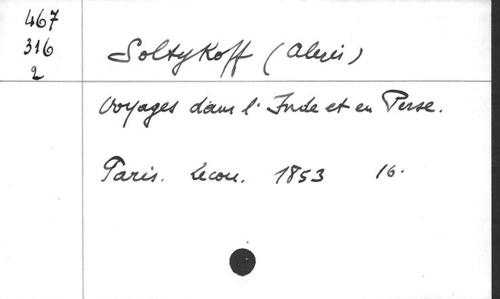 467
316
2
Soltykoff (Alexis)
Voyages dans l'Inde et en Perse.
Paris. Lecou. 1853 16.